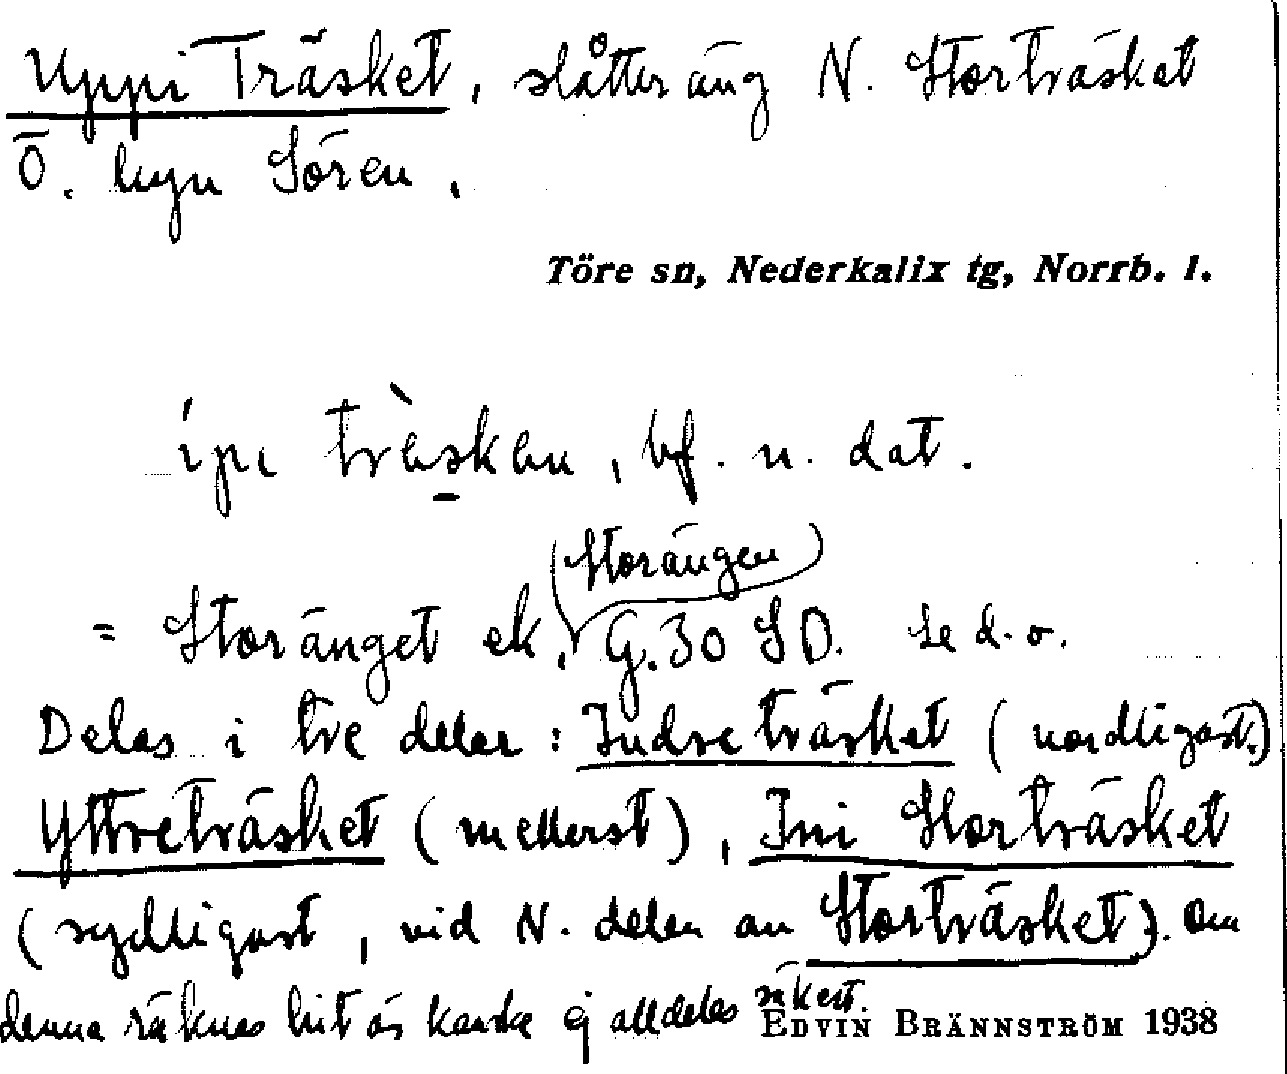 Uppi Träsket, slåtteräng N. Storträsket
Ö. byn Sören.
Töre sn, Nederkalix tg, Norrb. l.
ípi trὰskən, bf. n. dat.
(Storängen)
= Storänget ek. G.30 SD. Se d. o.
Delas i tre delar: Indreträsket (nordligast.)
Yttreträsket (mellerst), Ini Storträsket
(sydligast, vid N. delen av Storträsket). Om
denna räknas hit är kanske ej alldeles säkert.
EDVIN BRÄNNSTRÖM 1938